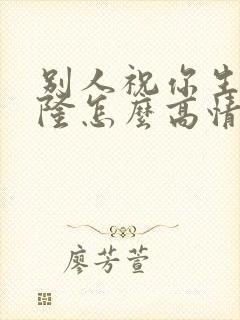 别人祝你生
隆怎麼高情
廖芳萱